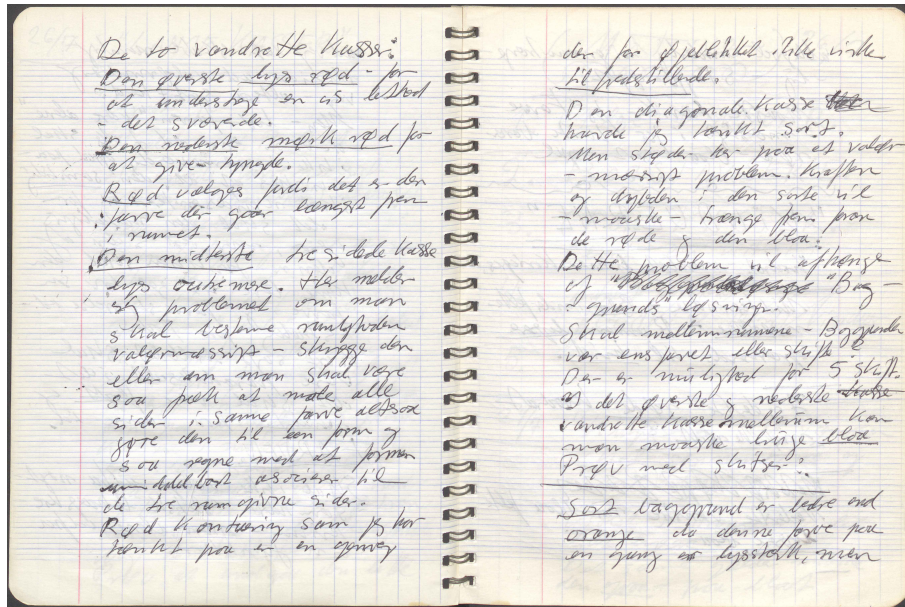 De to vandrette Kasser:
Den øverste lys rød - for
at understrege en vis lethed
- det svævende.
Den nederste mørk rød for
at give tyngde.
Rød vælges fordi det er den
farve der gaar længst frem
i rummet.
Den midterste tresidede Kasse
lys outremer. Her melder
sig problemet om man
skal bestemme rumligheden
valørmæssigt - skygge den
eller om man skal være
saa fræk at male alle
sider i samme farve altsaa
gøre den til een form og
saa regne med at formen
umiddelbart associerer til
de tre rumgivne sider.
Rød Konturering som jeg har
tænkt paa er en genvej
der for øjeblikket ikke virker
tilfredsstillende.
Den diagonale Kasse
havde jeg tænkt sort.
Man støder her paa et valør-
- mæssigt problem. Kraften
og dybden i den sorte vil
- maaske - trænge frem foran
de røde og den blaa.
Dette problem vil afhænge
af "Bag-
- grunds" løsning.
Skal mellemrummene - Baggrunden
vær ensfarvet eller skifte?
Der er mulighed for 5 skift.
I det øverste og nederste
vandrette Kassemellemrum kan
man maaske bruge blaa
Prøv med skitser?
Sort baggrund er bedre end
orange da denne farve paa
en gang er lysstærk, men